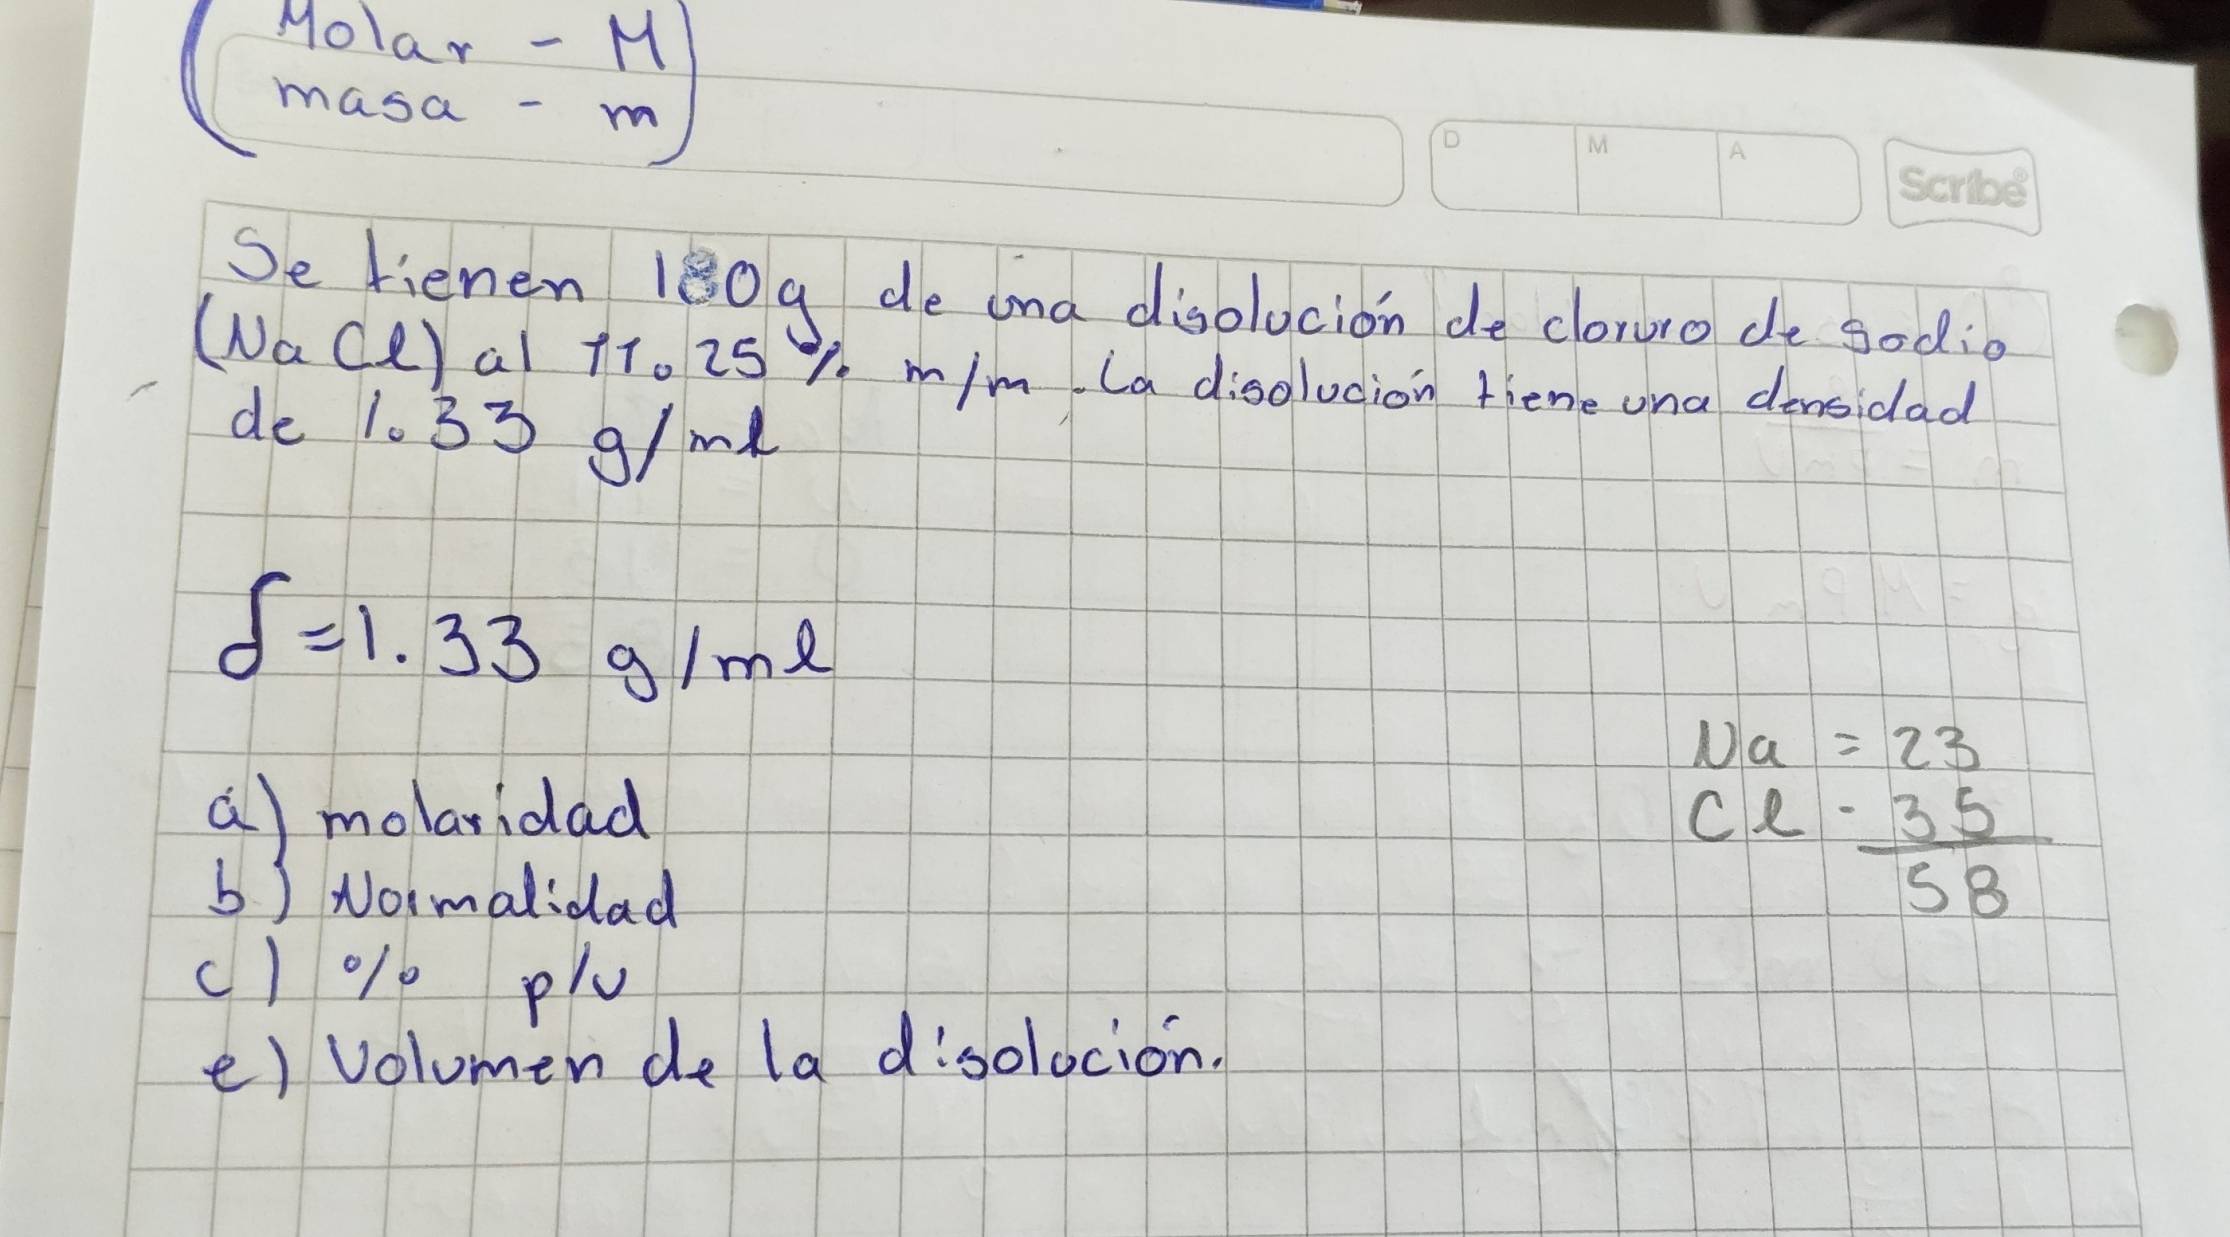 Molar - M
masa - m
D M A
Scribe®
Se tienen 180g de una disolución de cloruro de sodio
(NaCl) al 11.25 % m/m. La disolución tiene una densidad
de 1.33 g/ml
δ = 1.33 g/ml
Na = 23
Cl - 35
58
a) molaridad
b) Normalidad
c) % p/v
e) Volumen de la disolución.